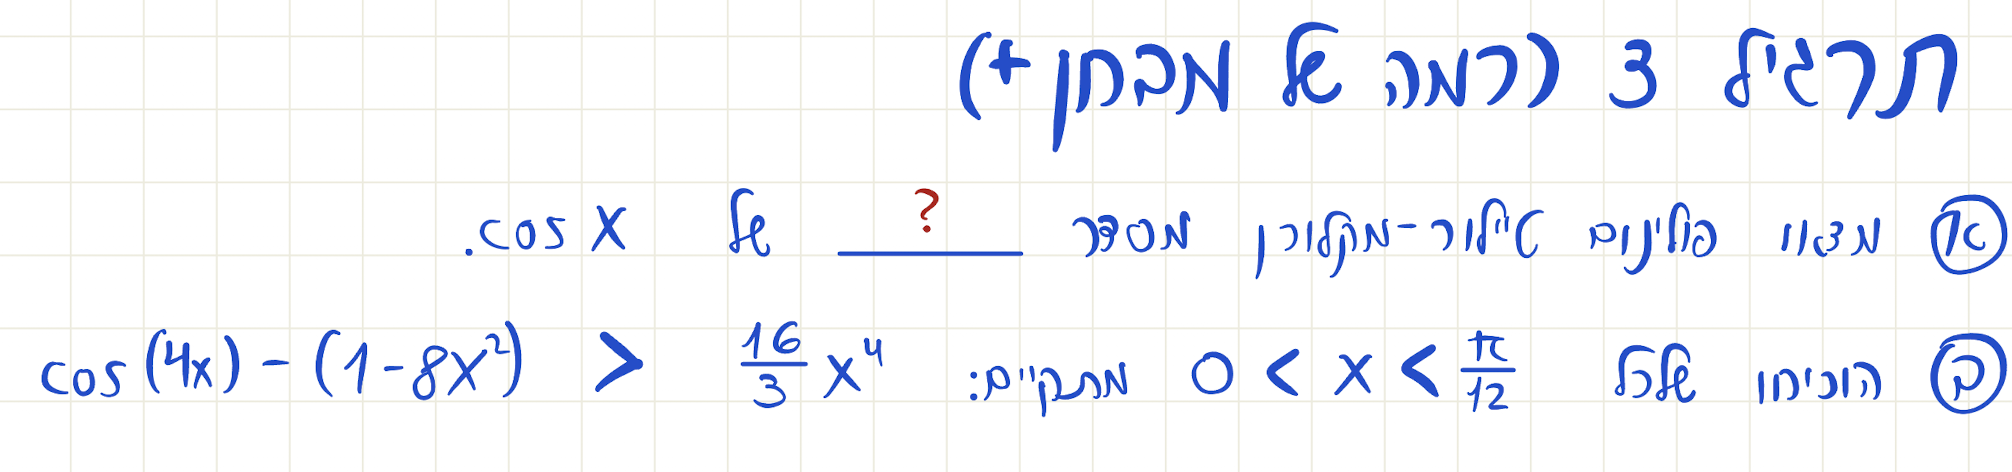 תרגיל 3 (רמה של מבחן +)
א מצאו פולינום טיילור-מקלורן מסדר ? של cos x.
ב הוכיחו שלכל 0 < x < π/12 מתקיים: cos(4x) - (1-8x²) > 16/3 x⁴